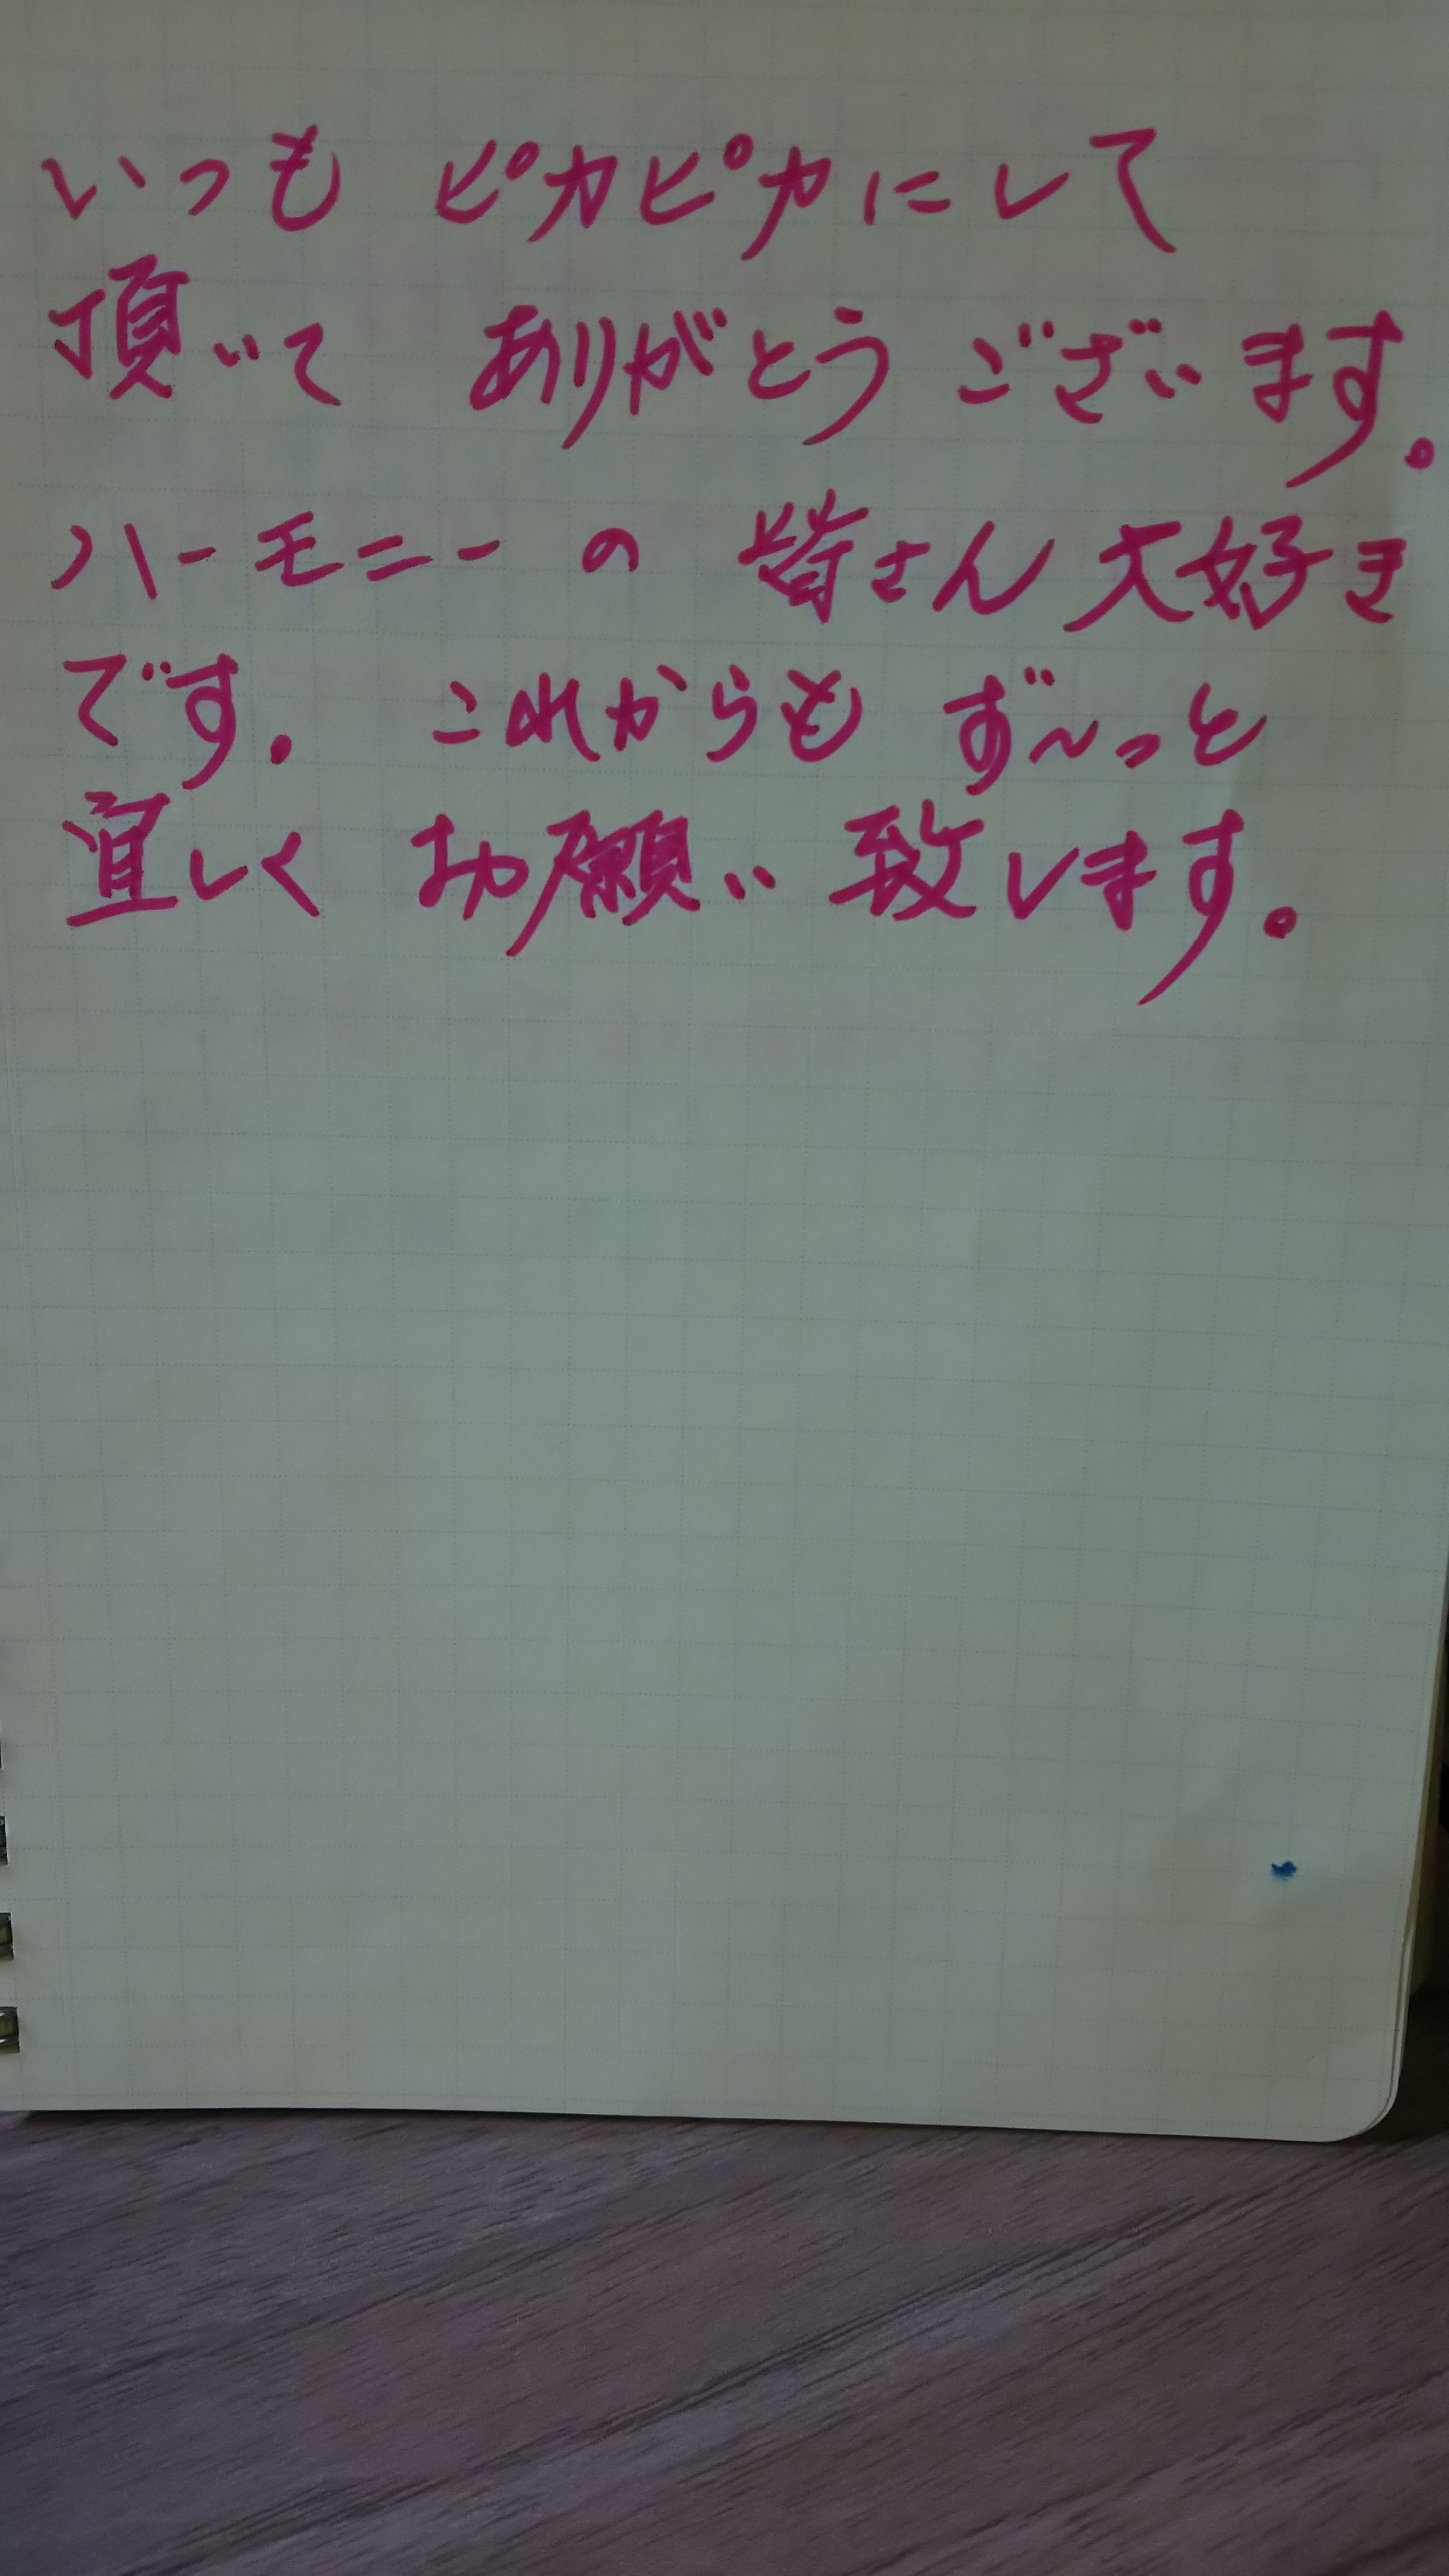 いつも ピカピカにして
頂いて ありがとう ございます。
ハーモニー の 皆さん 大好き
です。 これからも ず〜っと
宜しく お願い 致します。